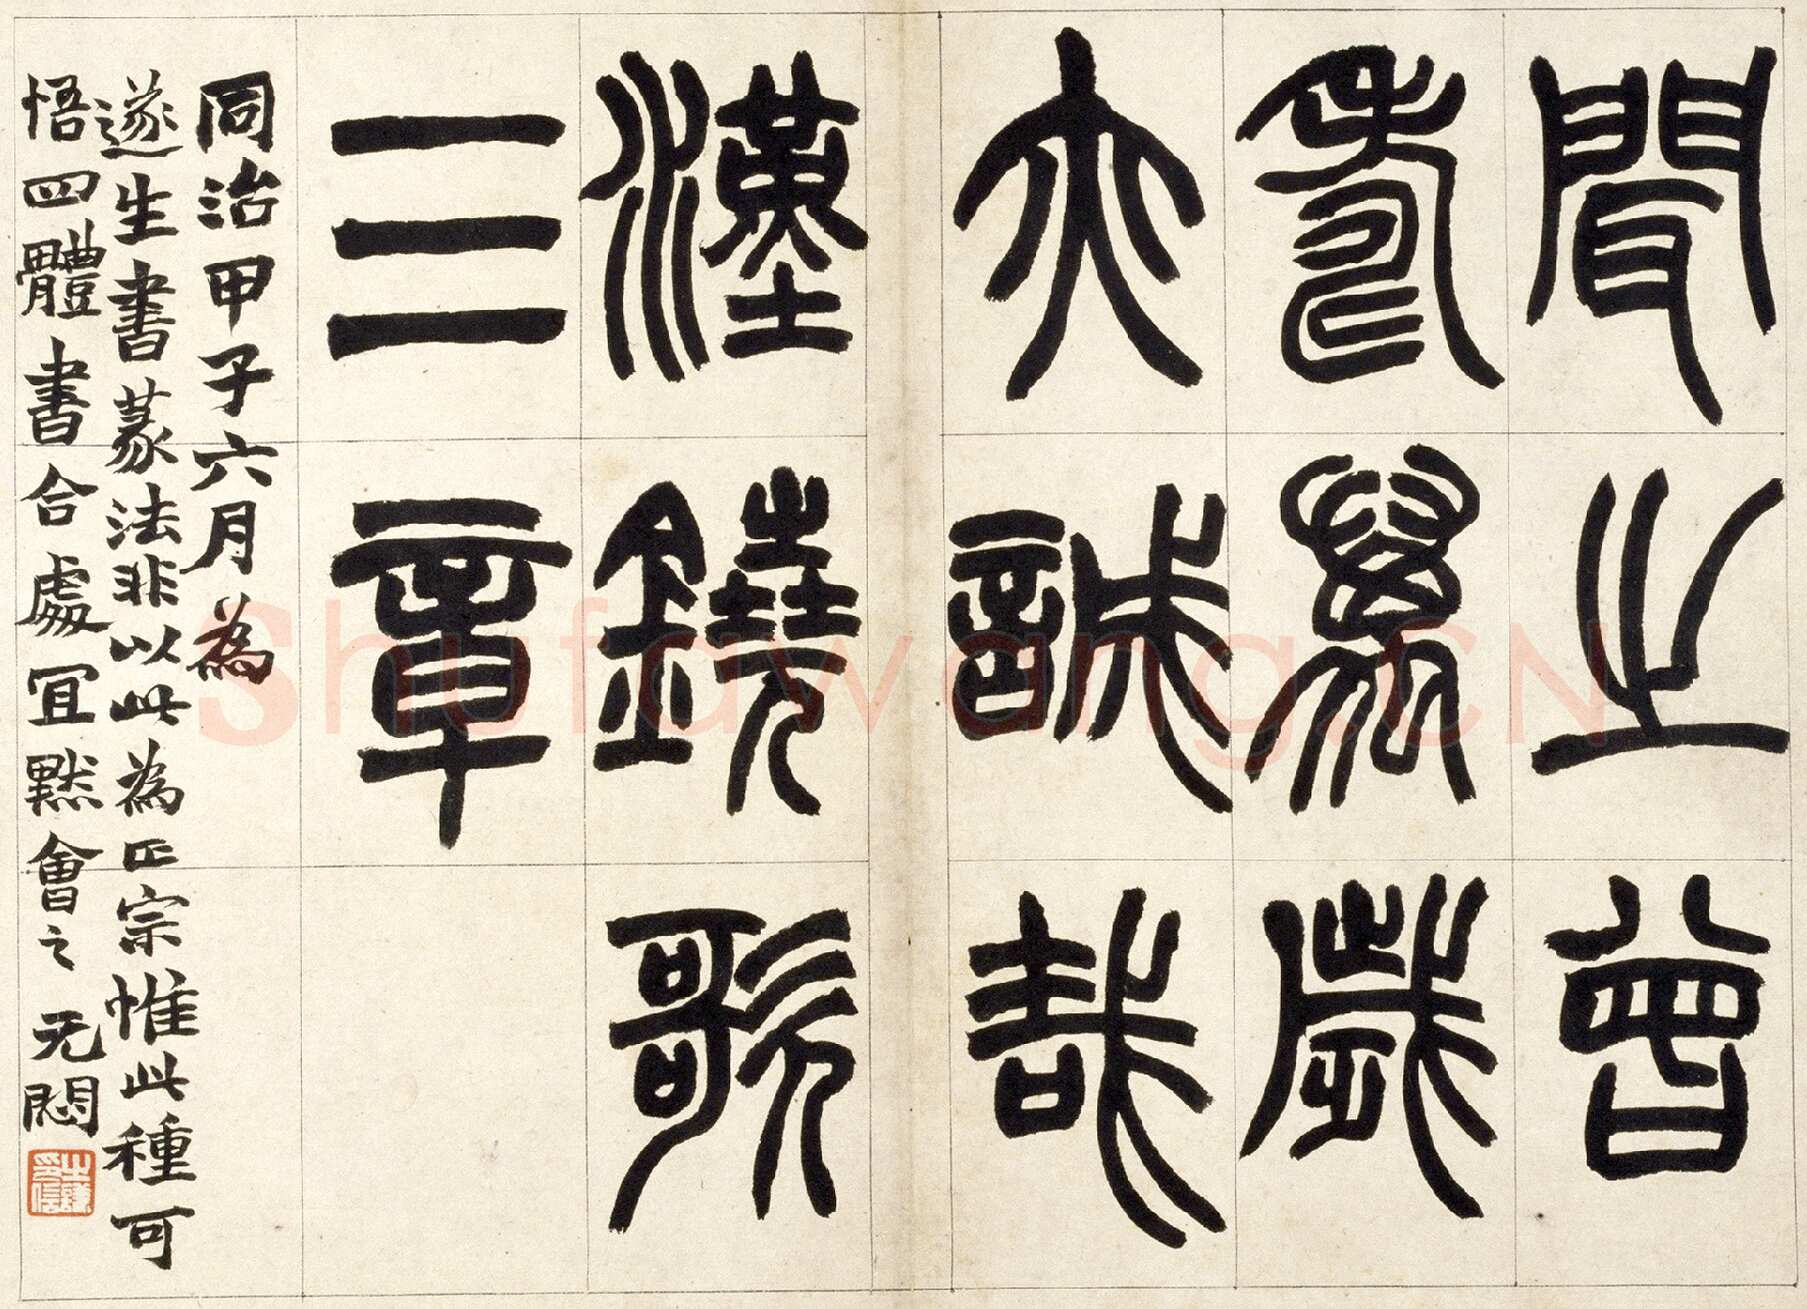 聞之曾
壽萬歲
亦誠哉
漢鐃歌
三章
同治甲子六月為
遂生書篆法非以此為正宗惟此種可
悟四體書合處宜默會之无悶
之謙印信
Shufawang.CN